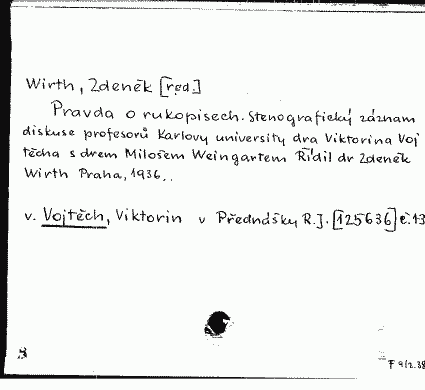 Wirth, Zdeněk [red.]
Pravda o rukopisech. Stenografický záznam
diskuse profesorů Karlovy university dra Viktorina Voj
těcha s drem Milošem Weingartem Řídil dr Zdeněk
Wirth Praha, 1936..
v. Vojtěch, Viktorin v Přednášky R.J. [125636] č.13
F 9/2.38